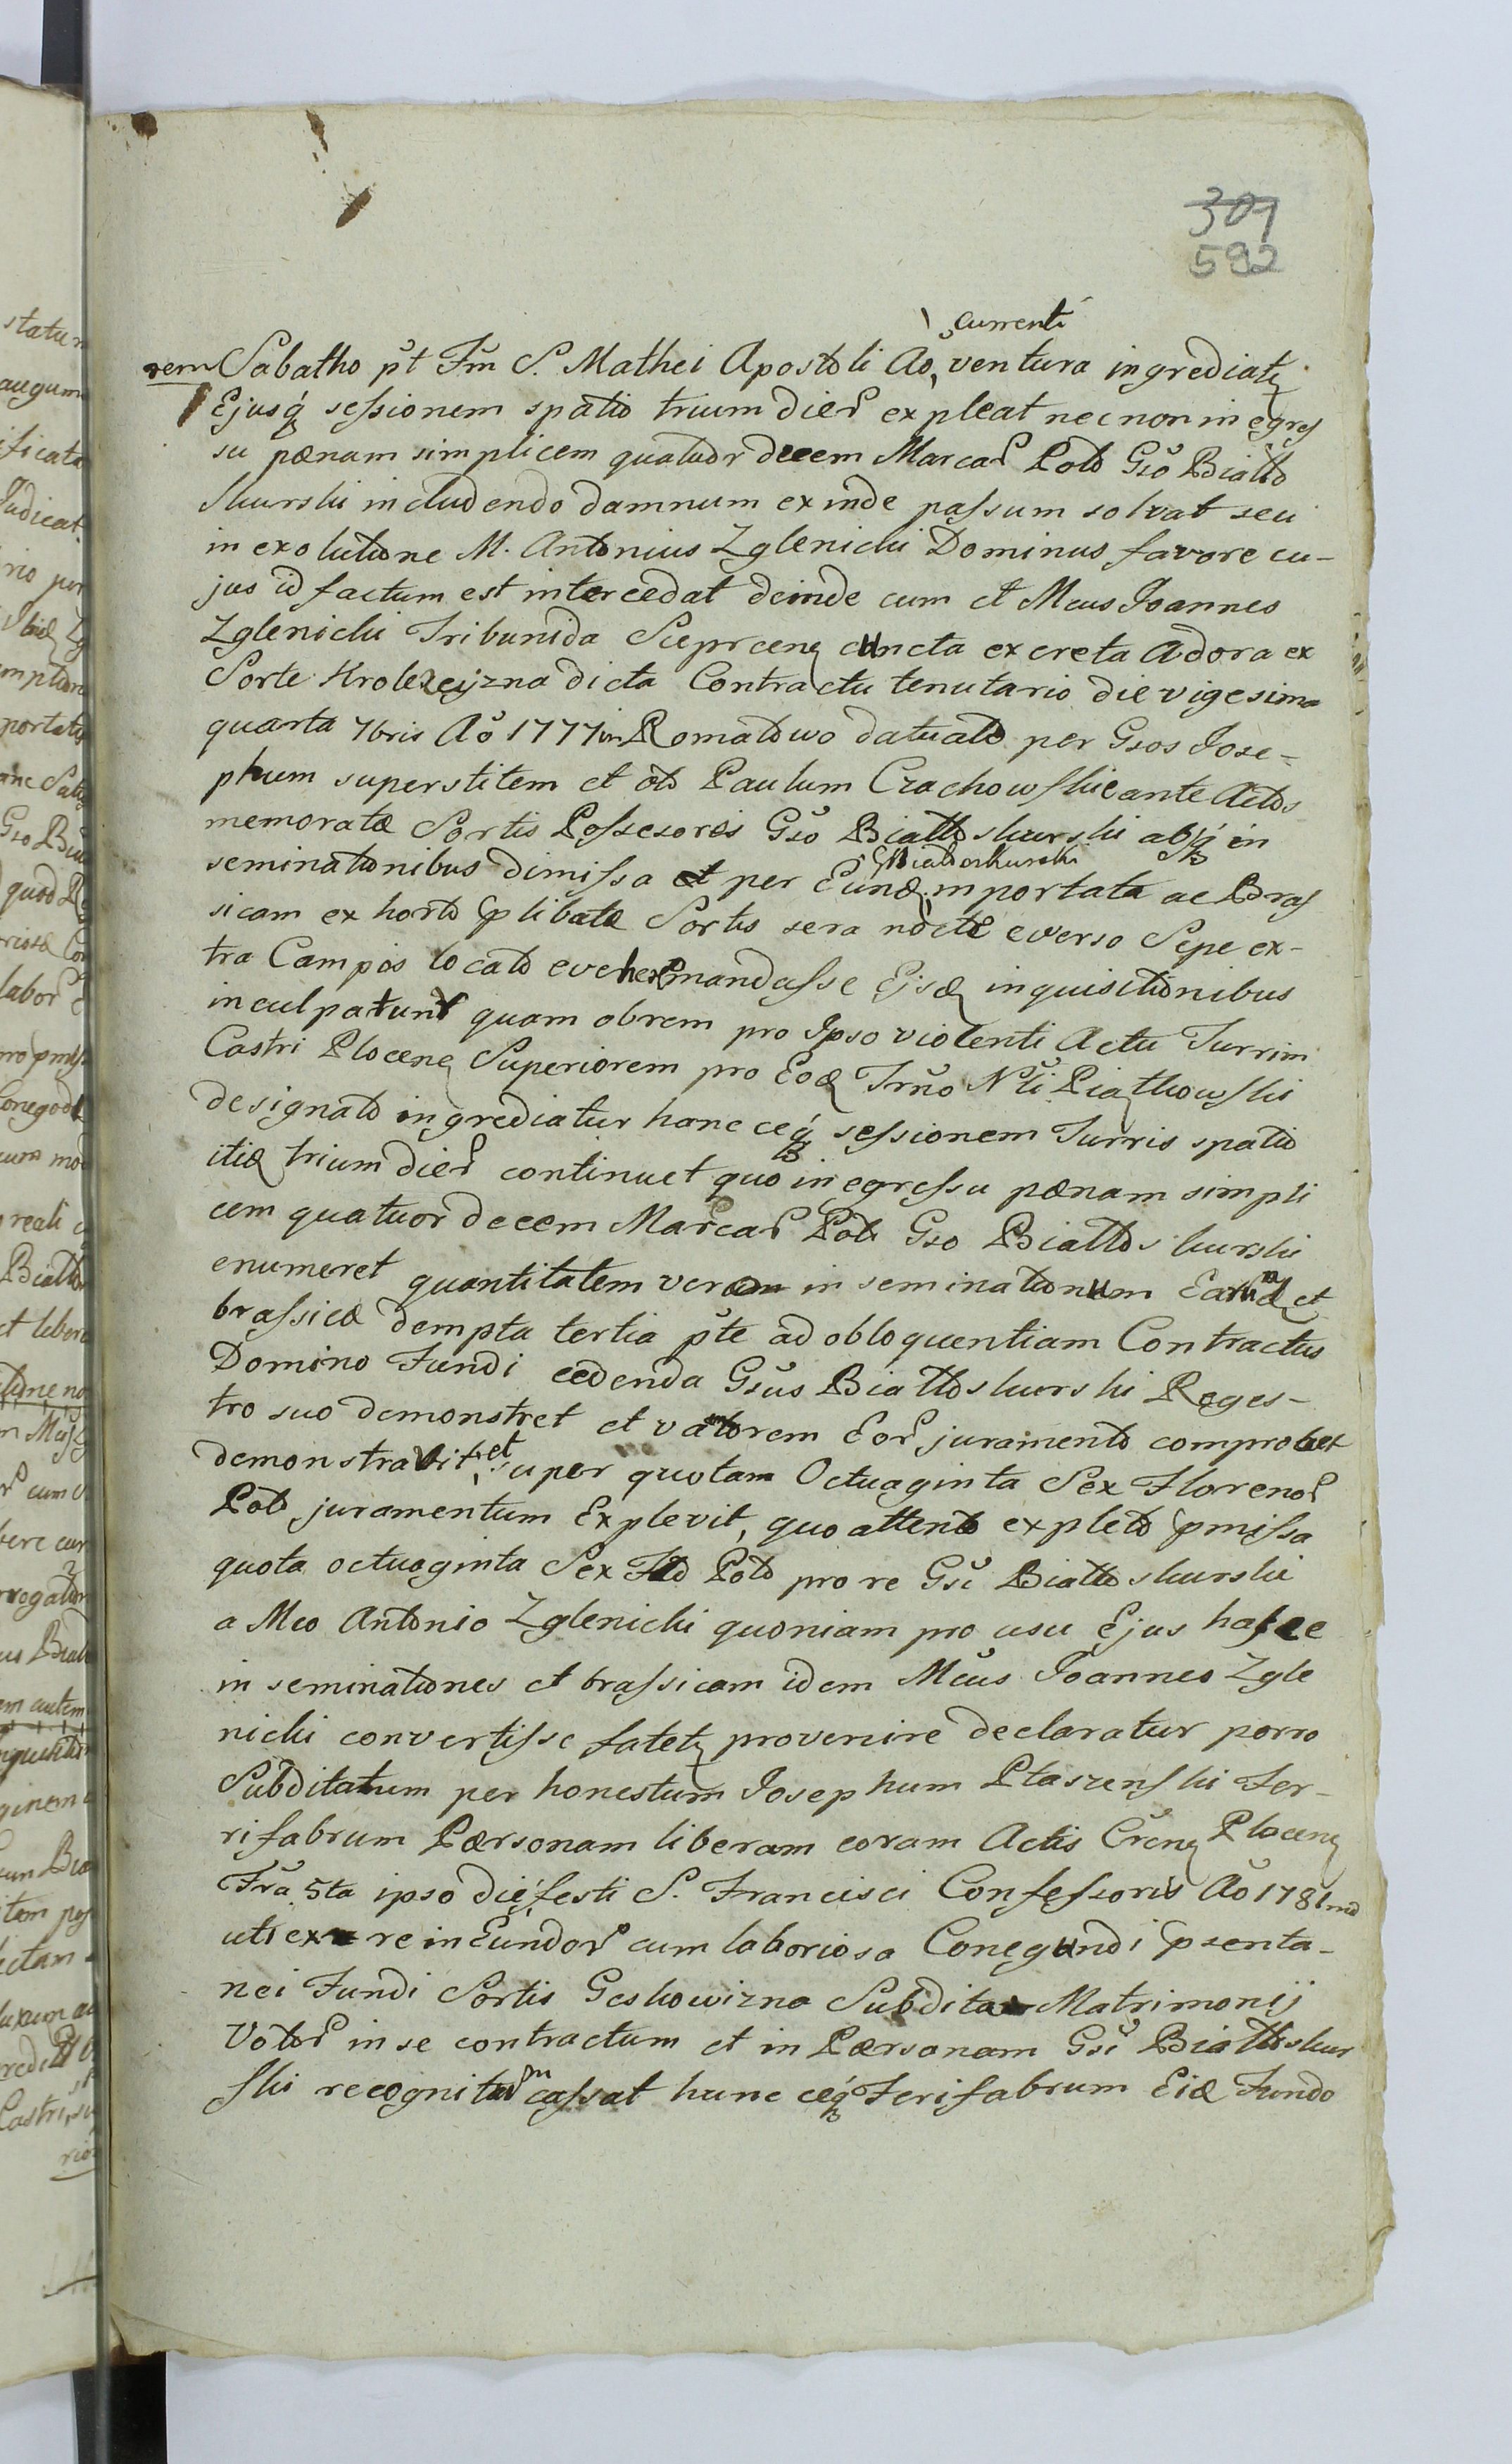 301
592
currenti
rem Sabatho pt Fm S. Mathei Apostoli Ao, ventura ingrediatr
Ejusq sessionem spatio trium dier expleat nec non in egres
su pænam simplicem quatuor decem Marcar Pol Gso Biallo
skurski includendo damnum exinde passum solvat seu
in exolutione M. Antonius Zglenicki Dominus favore cu-
jus id factum est intercedat deinde cum et Mcus Joannes
Zglenicki Tribunida Sieprcen cuncta excreta Adora ex
Sorte Krolezeyzna dicta Contractu tenutario die vigesima
quarta 7bris Ao 1777 in Romatowo datuato per Gsos Jose-
phum superstitem et ol Paulum Czachowskie ante Actos
memoratæ Sortis Possesores Gso Biallo skurski absq in
Biatloskurski
seminationibus dimissa et per Eund importata ac Bras
sicam ex horto plibatæ Sortis sera nocte everso Sepe ex-
tra Campos locato evehere mandasse Ejsd inquisitionibus
inculpatur quam obrem pro Ipso violenti Actu Turrim
Castri Plocen Superiorem pro Eod Trno Nli Piatkowski
designato ingrediatur hancceq sessionem Turris spatio
itid trium dier continuet quo in egressu pænam simpli
cem quatuor decem Marcar Pol Gso Biallos kurski
enumeret quantitatem veram in seminationum Earund et
brassicæ dempta tertia pte ad obloquentiam Contractus
Domino Fundi cedenda Gsus Biallo skurski Reges-
tro suo demonstret et valorem Eor juramento comprobet
demonstravit, et super quotam Octuaginta Sex Florenor
Pol juramentum Explevit, quo attento expleto pmissa
quota octuaginta Sex Fl Pol pro re Gsi Biallo skurski
a Mco Antonio Zglenicki quoniam pro usu Ejus hasce
in seminationes et brassicam idem Mcus Joannes Zgle
nicki convertisse fatetr provenire declaratur porro
Subditatum per honestum Josephum Ptaszenski Fer-
rifabrum Pærsonam liberam coram Actis Cren Plocen
Fra 5ta ipso die festi S. Francisci Confessoris Ao 1781mo
uti ex re in Eundor cum laboriosa Conegundi psenta-
nei Fundi Sortis Geskowizna Subdita Matrimonij
Votor in se contractum et in Pærsonam Gsi Bialloskur
ski recognitum cassat huncceq Ferifabrum Eid Fundo